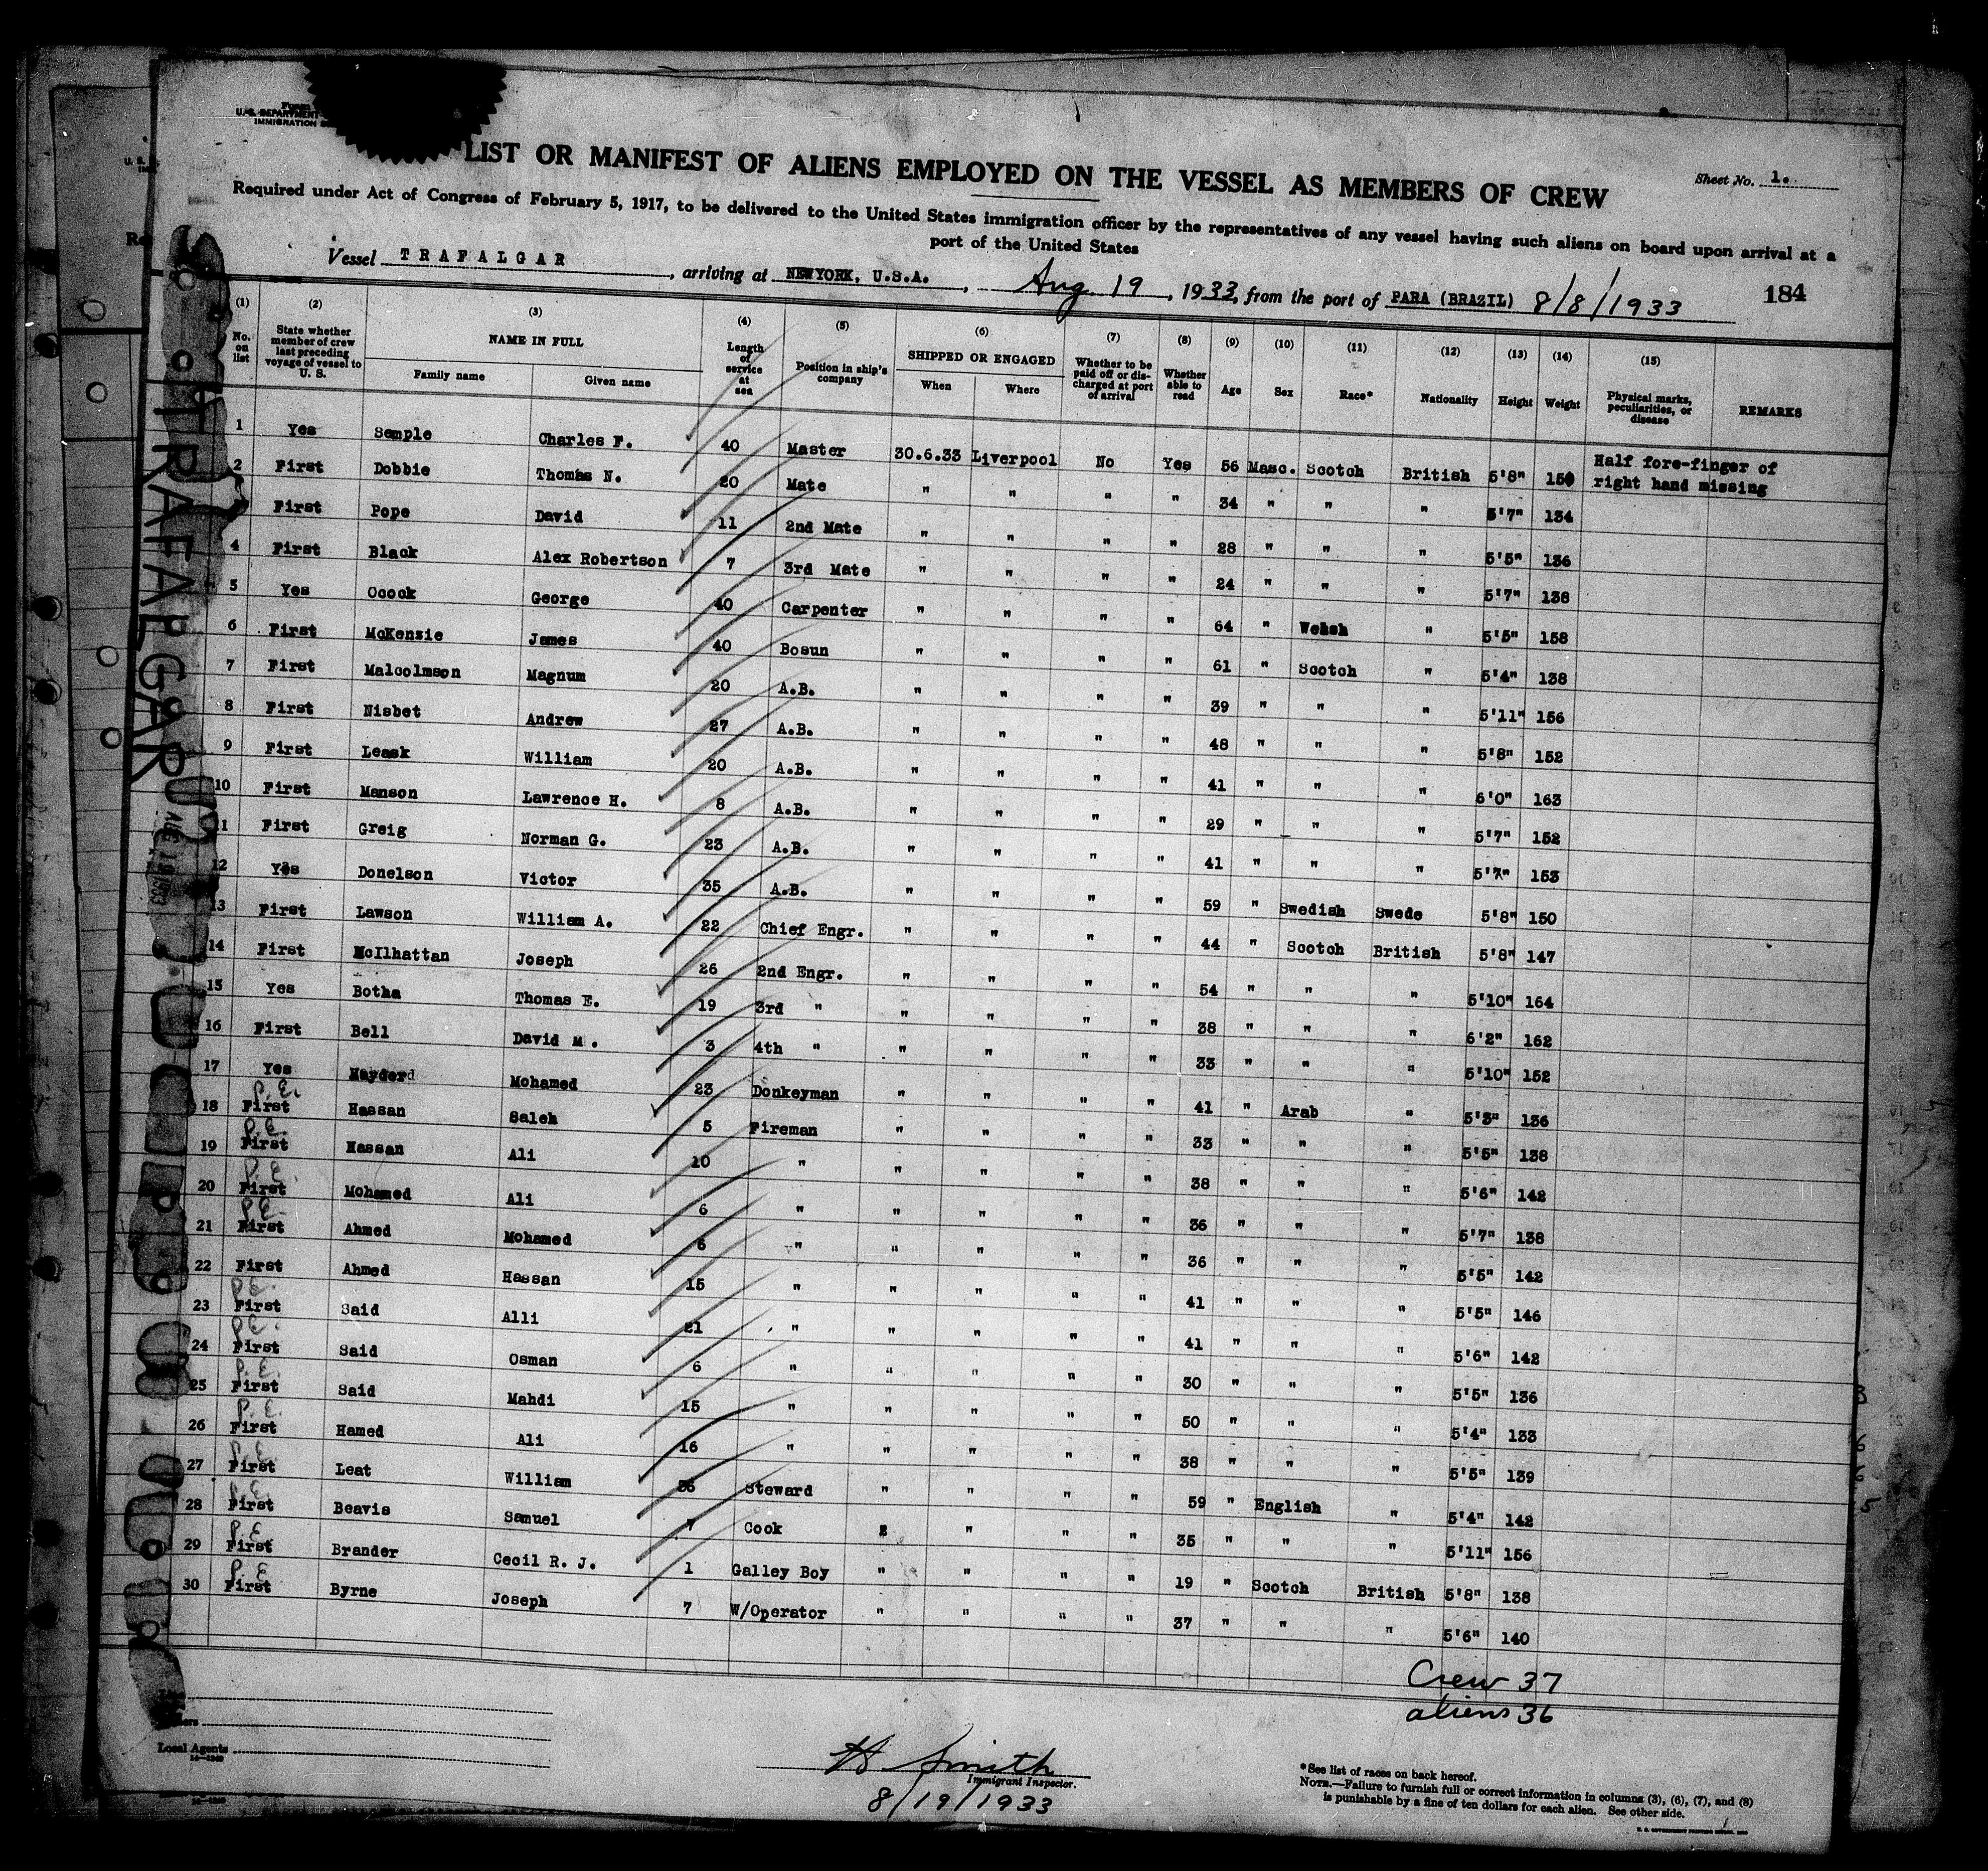 Form
U. S. DEPARTMENT
IMMIGRATION
LIST OR MANIFEST OF ALIENS EMPLOYED ON THE VESSEL AS MEMBERS OF CREW
Sheet No. 1.
Required under Act of Congress of February 5, 1917, to be delivered to the United States immigration officer by the representatives of any vessel having such aliens on board upon arrival at a
port of the United States
Vessel TRAFALGAR, arriving at NEWYORK, U.S.A., Aug 19, 1933, from the port of PARA (BRAZIL) 8/8/1933 184
(1) (2) (3) (4) (5) (6) (7) (8) (9) (10) (11) (12) (13) (14) (15)
No. on list State whether member of crew last preceding voyage of vessel to U. S. NAME IN FULL Family name Given name Length of service at sea Position in ship's company SHIPPED OR ENGAGED When Where Whether to be paid off or discharged at port of arrival Whether able to read Age Sex Race* Nationality Height Weight Physical marks, peculiarities, or disease REMARKS
1 Yes Semple Charles F. 40 Master 30.6.33 Liverpool No Yes 56 Masc. Scotch British 5'8" 150 Half fore-finger of right hand missing
2 First Dobbie Thomas N. 20 Mate " " " " 34 " " " 5'7" 134
First Pope David 11 2nd Mate " " " " 28 " " " 5'5" 136
4 First Black Alex Robertson 7 3rd Mate " " " " 24 " " " 5'7" 138
5 Yes Ocock George 40 Carpenter " " " " 64 " Welsh " 5'5" 158
6 First McKenzie James 40 Bosun " " " " 61 " Scotch " 5'4" 138
7 First Malcolmson Magnum 20 A.B. " " " " 39 " " " 5'11" 156
8 First Nisbet Andrew 27 A.B. " " " " 48 " " " 5'8" 152
9 First Leask William 20 A.B. " " " " 41 " " " 6'0" 163
10 First Manson Lawrence H. 8 A.B. " " " " 29 " " " 5'7" 152
11 First Greig Norman G. 23 A.B. " " " " 41 " " " 5'7" 153
12 Yes Donelson Victor 35 A.B. " " " " 59 " Swedish Swede 5'8" 150
13 First Lawson William A. 22 Chief Engr. " " " " 44 " Scotch British 5'8" 147
14 First McIlhattan Joseph 26 2nd Engr. " " " " 54 " " " 5'10" 164
15 Yes Botha Thomas E. 19 3rd " " " " " 38 " " " 6'2" 162
16 First Bell David M. 3 4th " " " " " 33 " " " 5'10" 152
17 Yes Hayderd Mohamed 23 Donkeyman " " " " 41 " Arab " 5'3" 136
P.E.
18 First Hassan Saleh 5 Fireman " " " " 33 " " " 5'5" 138
P.E.
19 First Hassan Ali 10 " " " " " 38 " " " 5'6" 142
P.E.
20 First Mohamed Ali 6 " " " " " 36 " " " 5'7" 138
P.E.
21 First Ahmed Mohamed 6 " " " " " 36 " " " 5'5" 142
22 First Ahmed Hassan 15 " " " " " 41 " " " 5'5" 146
P.E.
23 First Said Alli 21 " " " " " 41 " " " 5'6" 142
P.E.
24 First Said Osman 6 " " " " " 30 " " " 5'5" 136
P.E.
25 First Said Mahdi 15 " " " " " 50 " " " 5'4" 133
P.E.
26 First Hamed Ali 16 " " " " " 38 " " " 5'5" 139
P.E.
27 First Leat William Steward " " " " 59 " English " 5'4" 142
P.E.
28 First Beavis Samuel 7 Cook " " " 35 " " " 5'11" 156
P.E.
29 First Brander Cecil R. J. 1 Galley Boy " " " " 19 " Scotch British 5'8" 138
P.E.
30 First Byrne Joseph 7 W/Operator " " " " 37 " " " 5'6" 140
Crew 37
aliens 36
TRAFALGAR
Local Agents
H Smith
Immigrant Inspector.
8/19/1933
*See list of races on back hereof.
NOTE.—Failure to furnish full or correct information in columns (3), (6), (7), and (8)
is punishable by a fine of ten dollars for each alien. See other side.